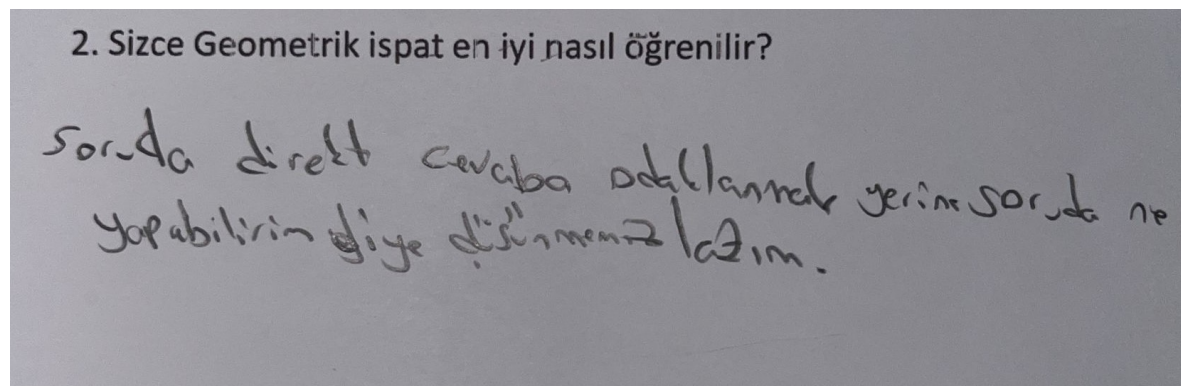 2. Sizce Geometrik ispat en iyi nasıl öğrenilir?
Soruda direkt cevaba odaklanmak yerine soruda ne
yapabilirim diye düşünmemiz lazım.